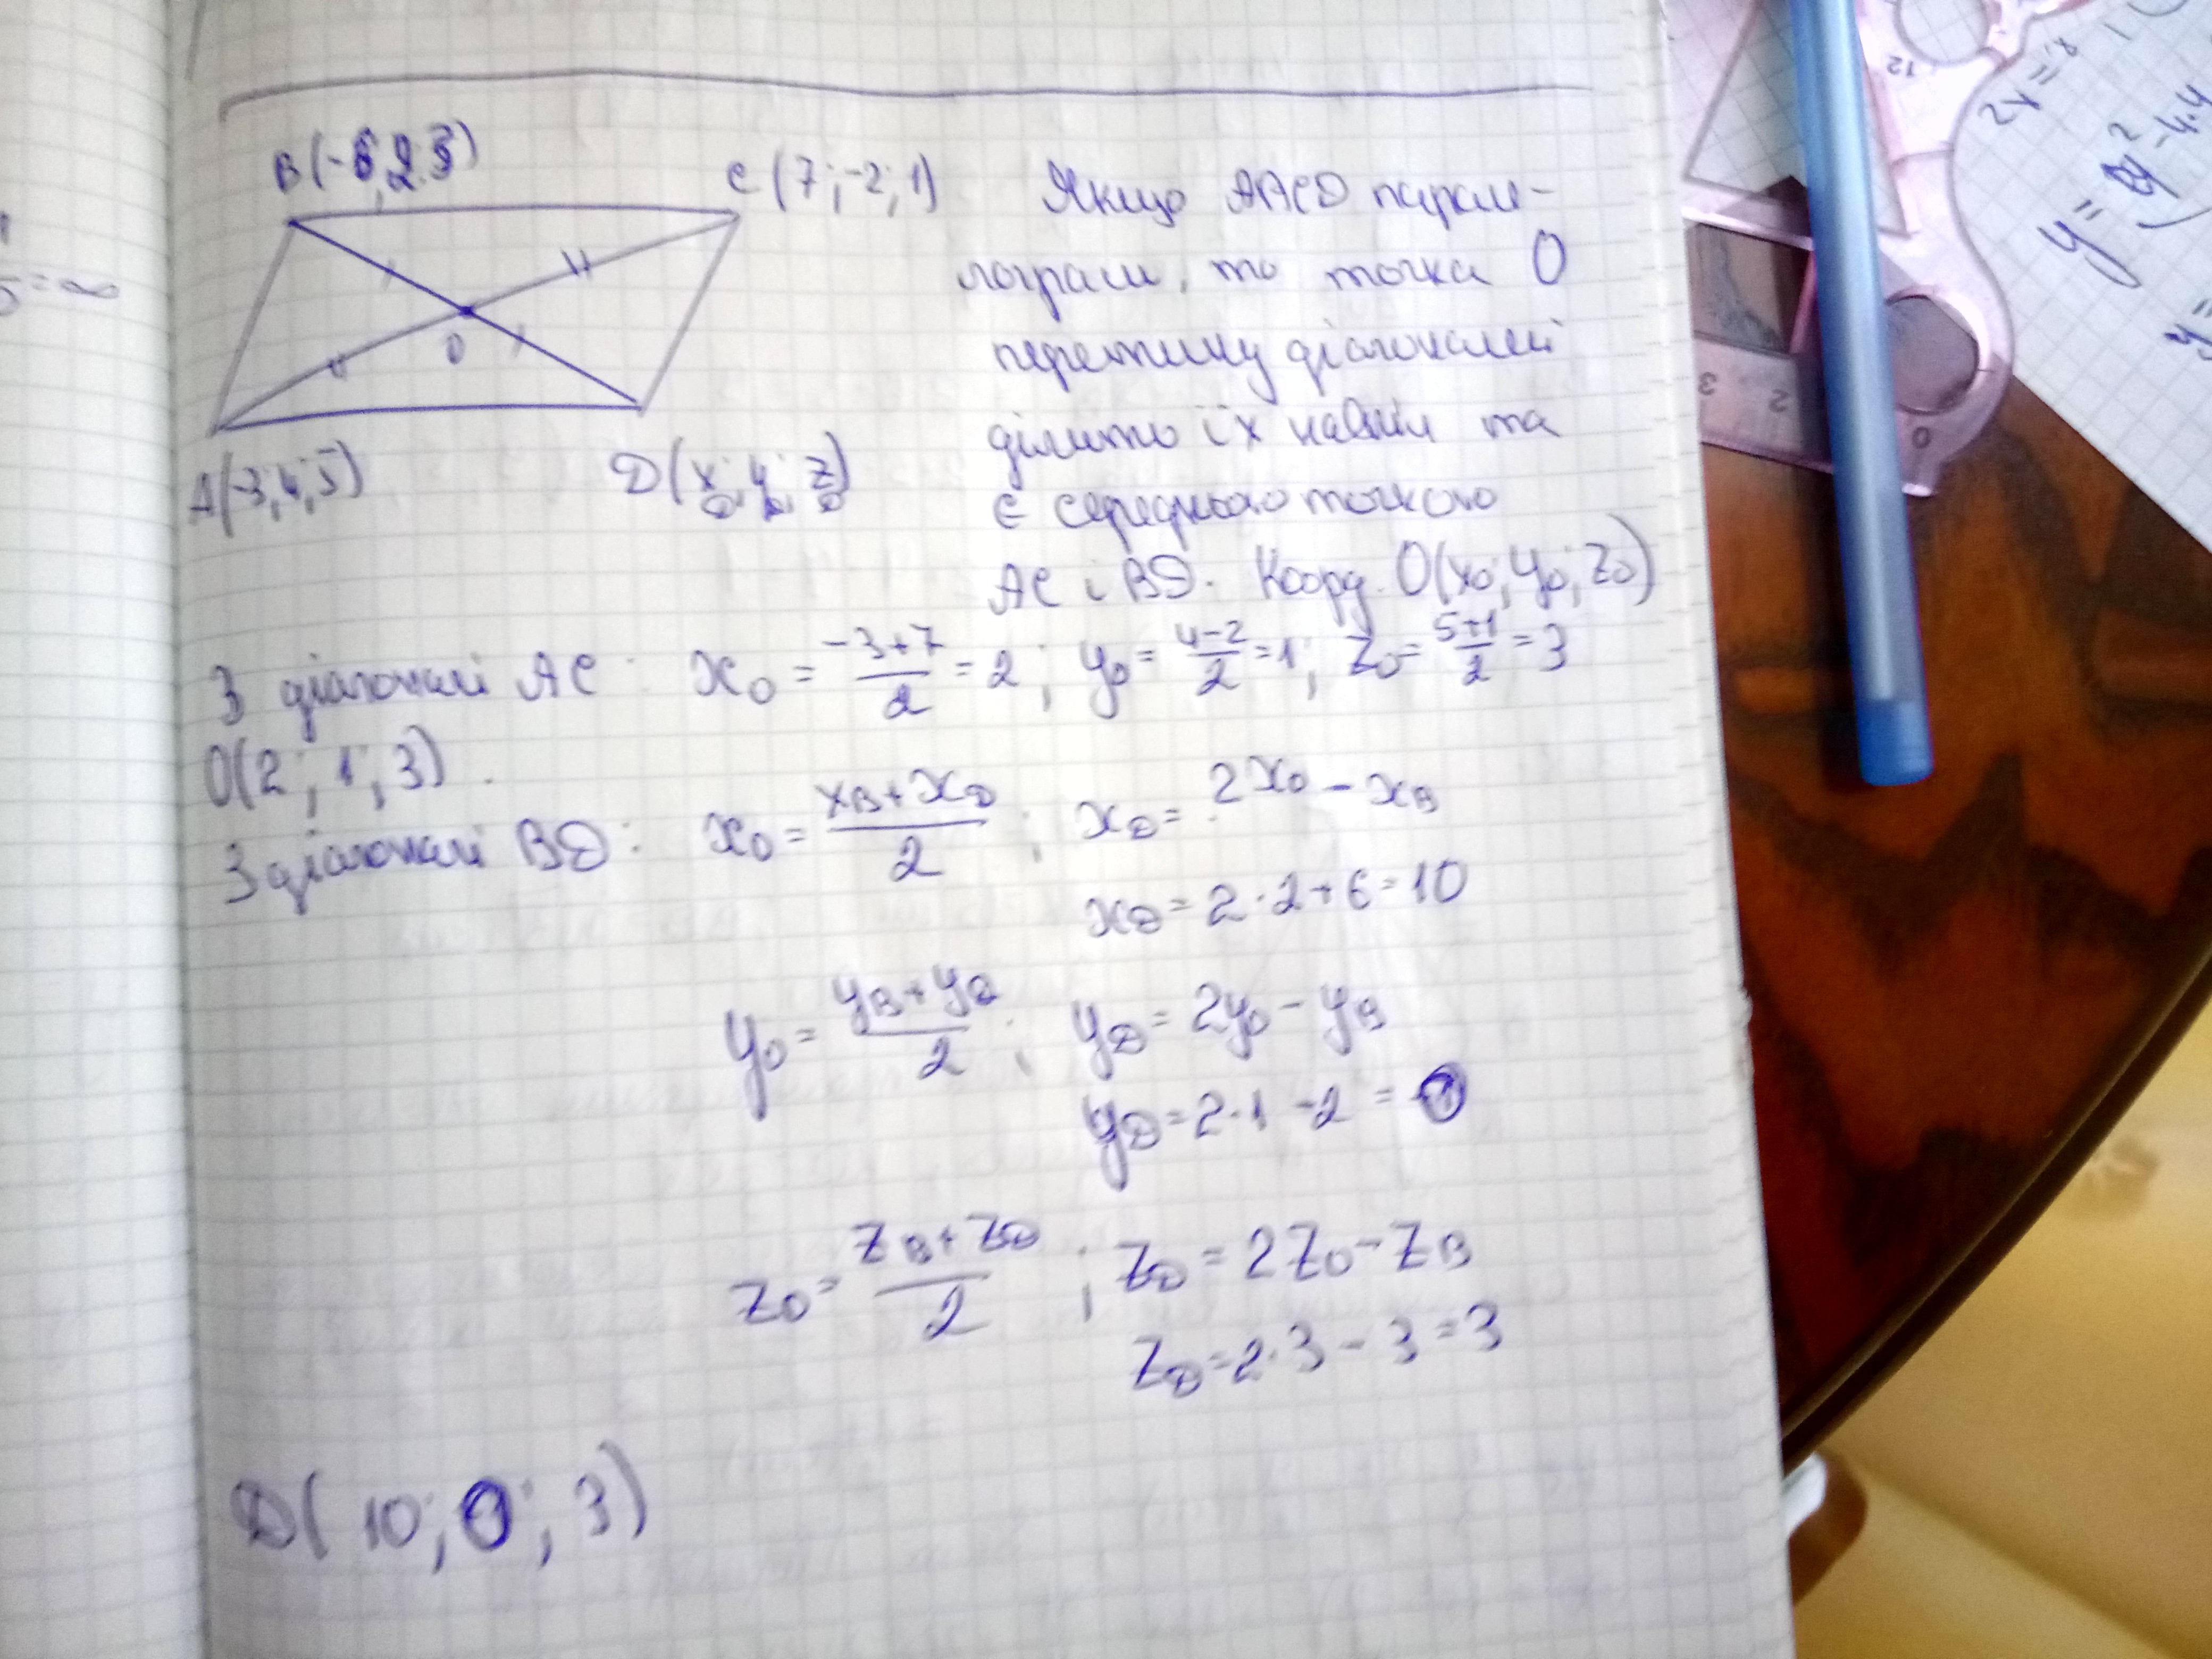 B(-6; 2; 3)
C (7; -2; 1)
Якщо AACD парале-
лограм, то точка O
перетину діагоналей
ділить їх навпіл та
є середньою точкою
AC і BD. Коорд. O(x₀; y₀; z₀)
O
A(-3; 4; 5)
D(x_D; y_D; z_D)
З діагоналі AC: x₀ = (-3+7)/2 = 2; y₀ = (4-2)/2 = 1; z₀ = (5+1)/2 = 3
O(2; 1; 3).
З діагоналі BD: x₀ = (x_B + x_D)/2; x_D = 2x₀ - x_B
x_D = 2·2+6=10
y₀ = (y_B + y_D)/2; y_D = 2y₀ - y_B
y_D = 2·1 -2 = 0
z₀ = (z_B + z_D)/2; z_D = 2z₀ - z_B
z_D = 2·3 - 3 = 3
D( 10; 0; 3)
= ∞
12
3 2 0
2y = x